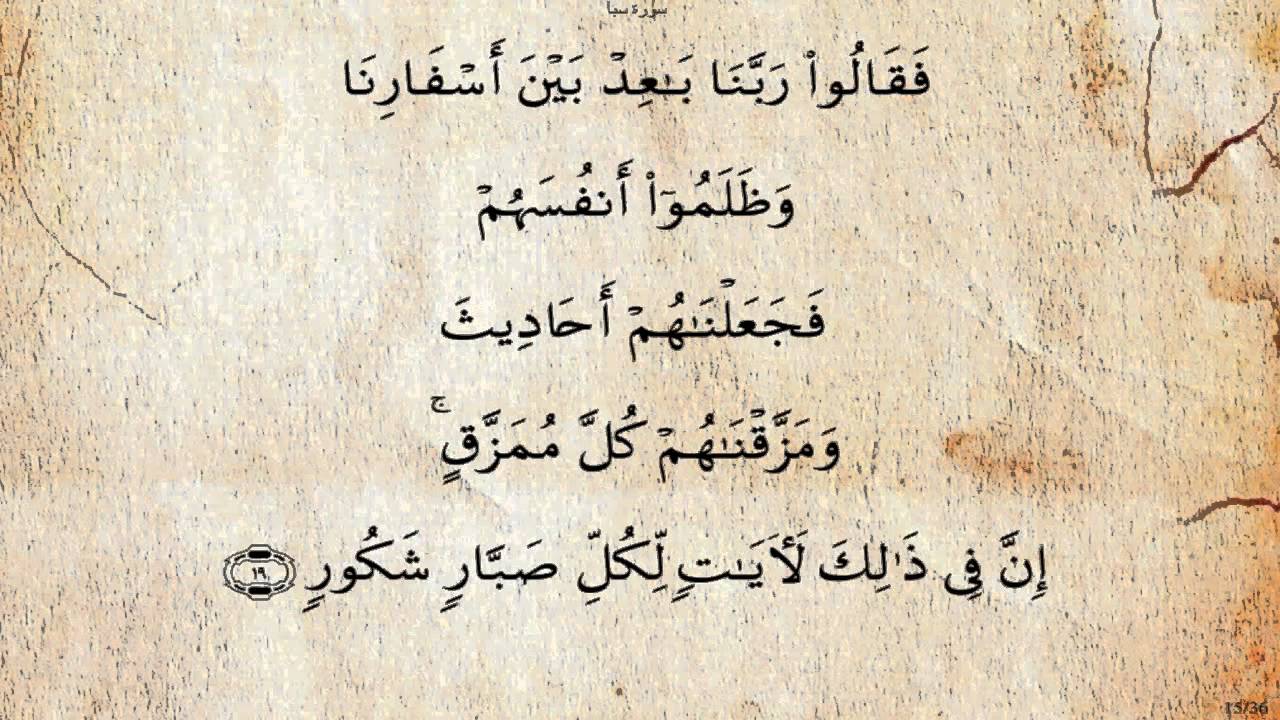 سورة سبأ
فَقَالُوا۟ رَبَّنَا بَـٰعِدۡ بَيۡنَ أَسۡفَارِنَا
وَظَلَمُوٓا۟ أَنفُسَهُمۡ
فَجَعَلۡنَـٰهُمۡ أَحَادِيثَ
وَمَزَّقۡنَـٰهُمۡ كُلَّ مُمَزَّقٍۚ
إِنَّ فِى ذَٰلِكَ لَأَيَـٰتٍ لِّكُلِّ صَبَّارٍ شَكُورٍ ١٩
15/36